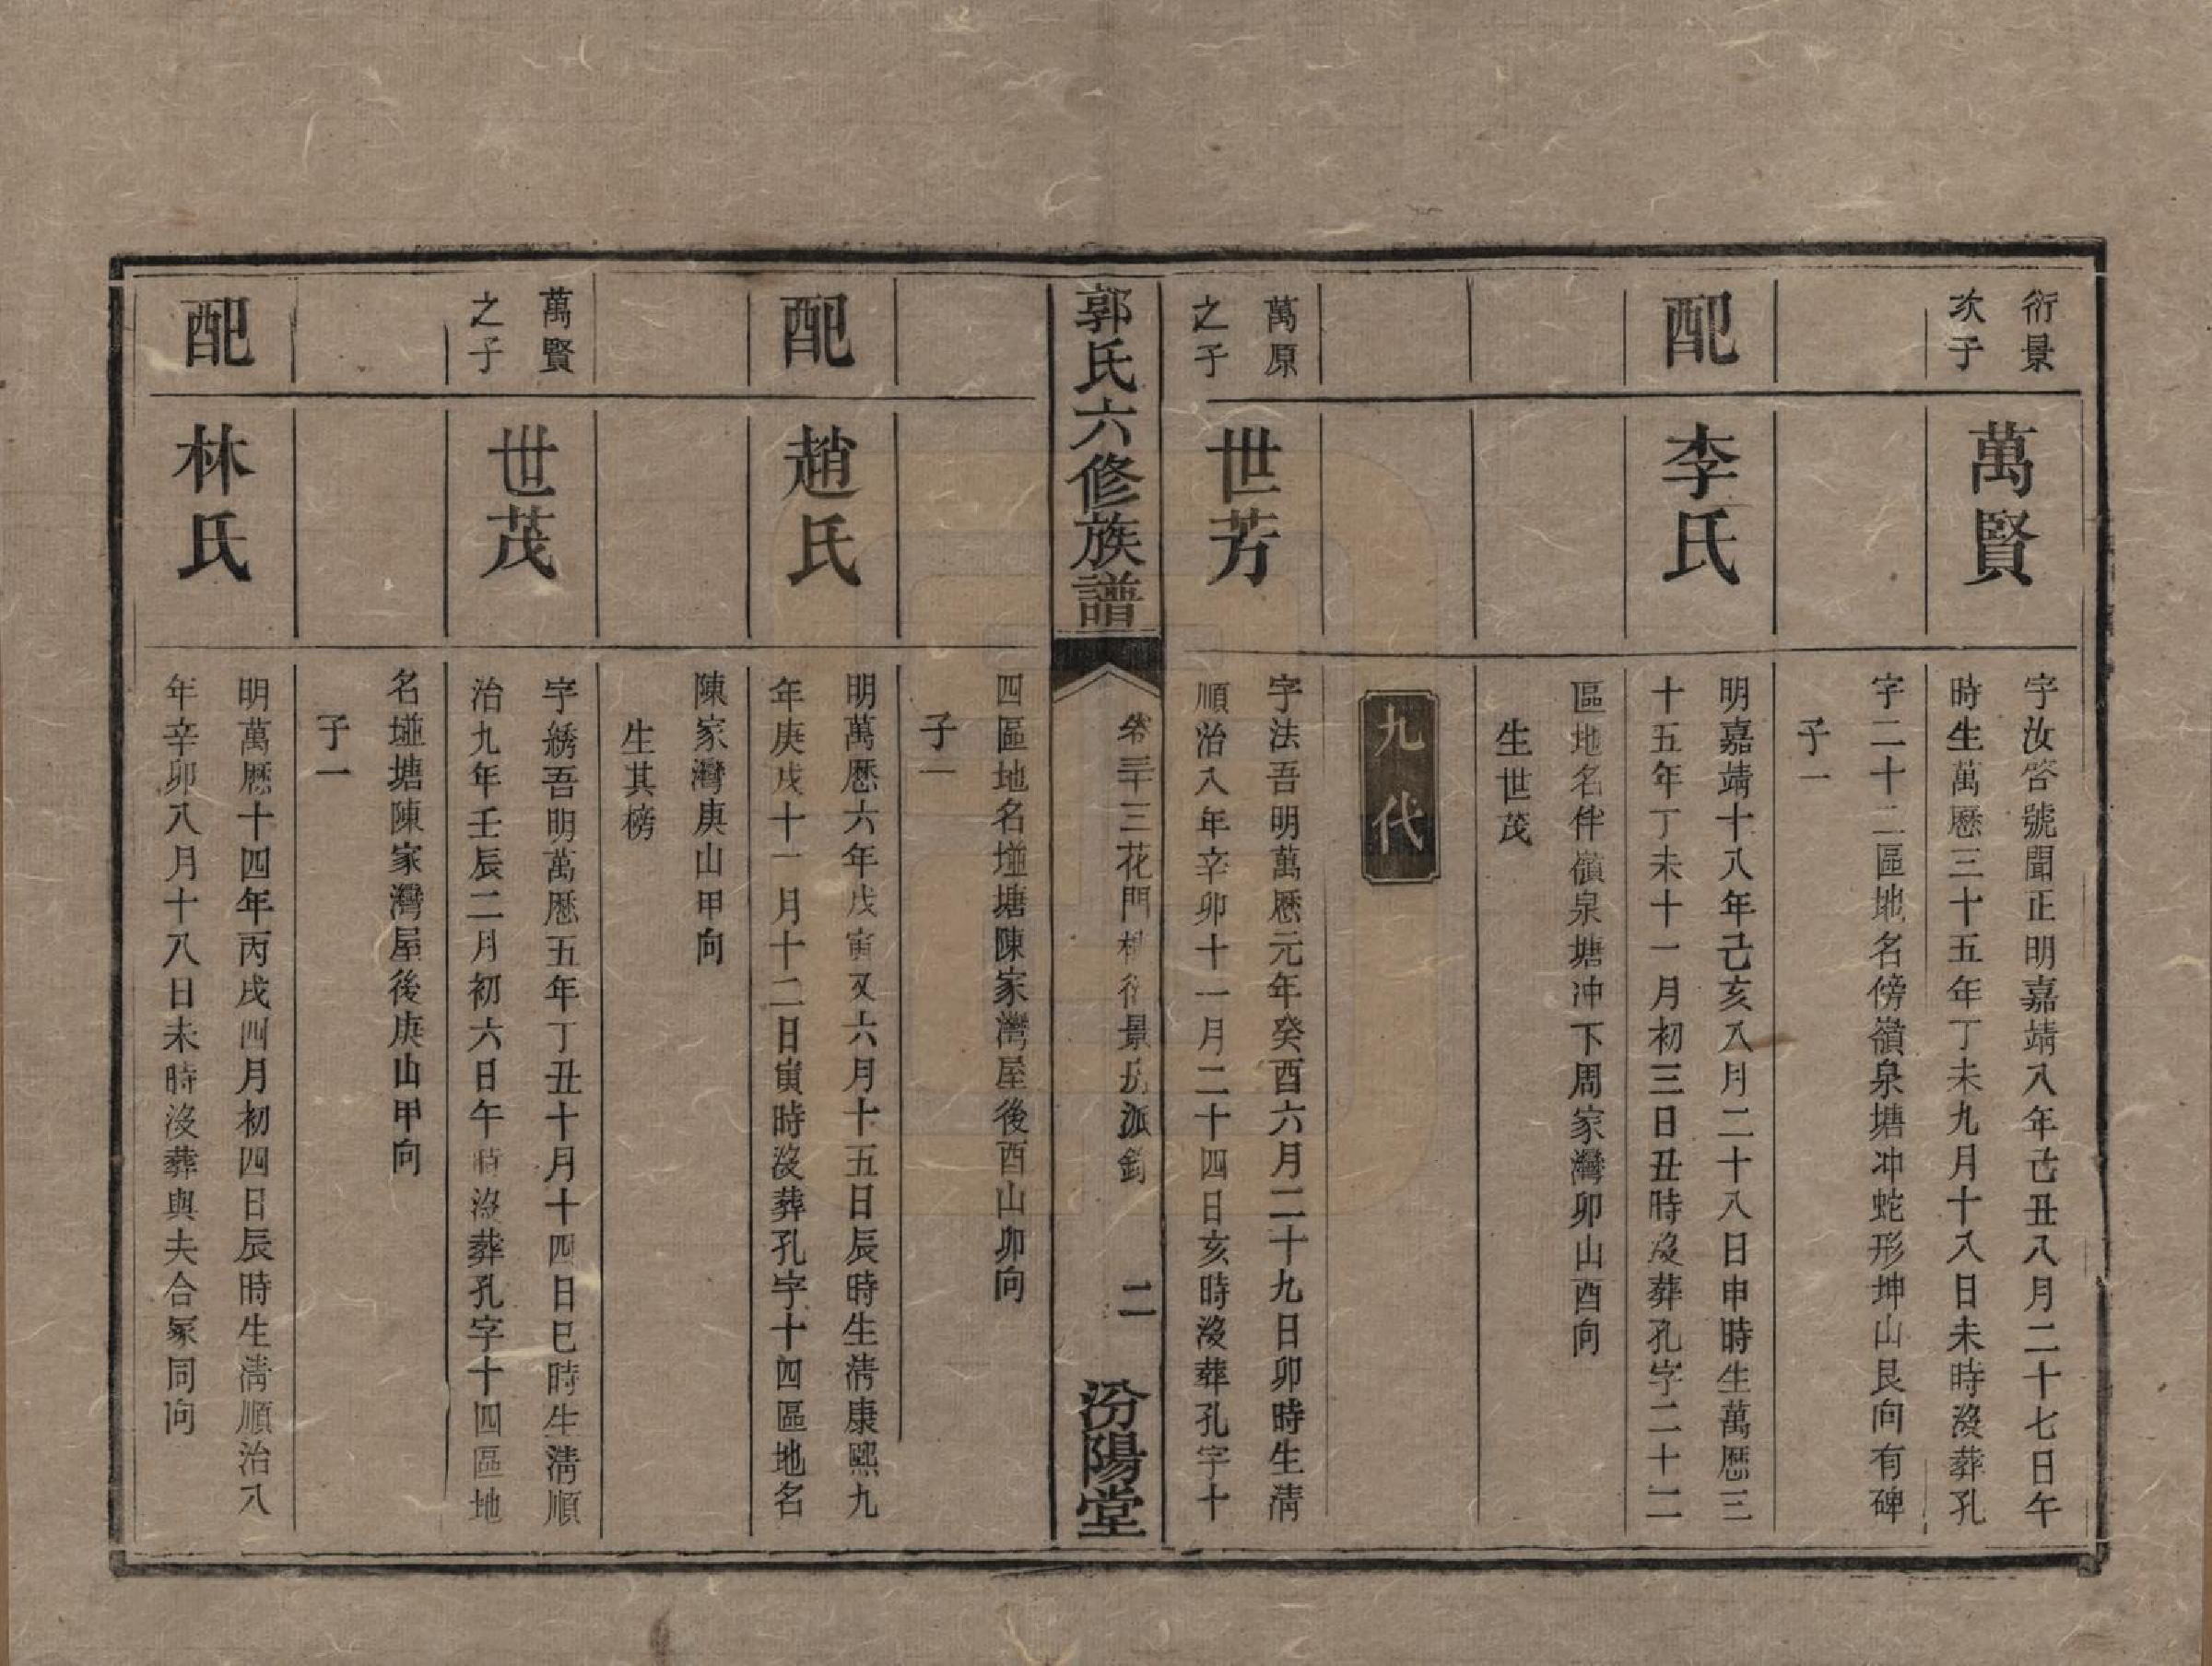 衍景
次子
萬賢
字汝咨號聞正明嘉靖八年己丑八月二十七日午
時生萬歷三十五年丁未九月十八日未時沒葬孔
字二十二區地名傍嶺泉塘冲蛇形坤山艮向有碑
子一
配
李氏
明嘉靖十八年己亥八月二十八日申時生萬歷三
十五年丁未十一月初三日丑時沒葬孔字二十二
區地名伴嶺泉塘冲下周家灣卯山酉向
生世茂
九代
萬原
之子
世芳
字法吾明萬歷元年癸酉六月二十九日卯時生清
順治八年辛卯十一月二十四日亥時沒葬孔字十
郭氏六修族譜
卷三十三花門樓衍景房派錄
二
汾陽堂
四區地名塸塘陳家灣屋後酉山卯向
子一
配
趙氏
明萬歷六年戊寅又六月十五日辰時生清康熙九
年庚戌十一月十二日寅時沒葬孔字十四區地名
陳家灣庚山甲向
生其榜
萬賢
之子
世茂
字綉吾明萬歷五年丁丑十月十四日巳時生清順
治九年壬辰二月初六日午時沒葬孔字十四區地
名塸塘陳家灣屋後庚山甲向
子一
配
林氏
明萬歷十四年丙戌四月初四日辰時生清順治八
年辛卯八月十八日未時沒葬與夫合冢同向